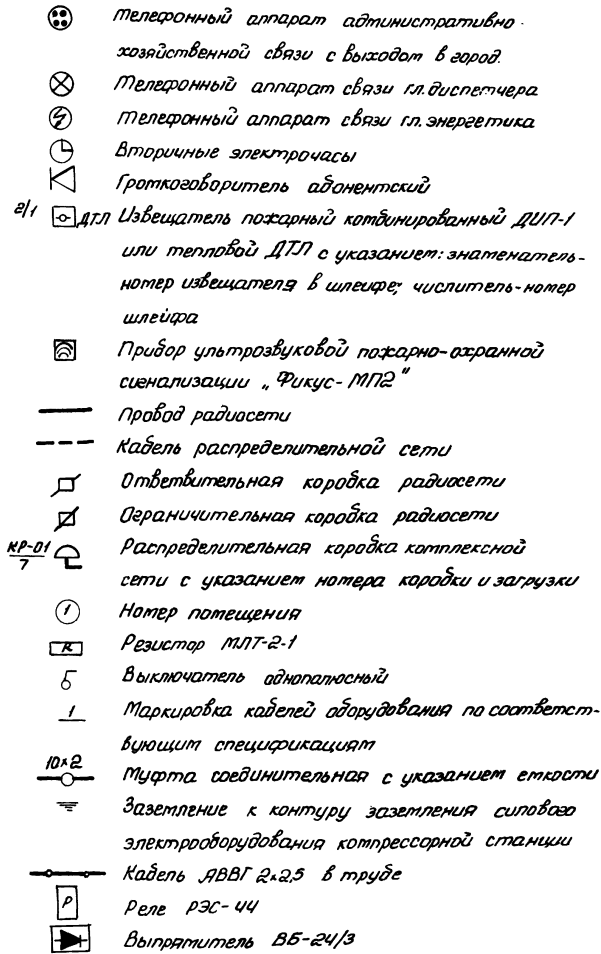 Телефонный аппарат административно-
хозяйственной связи с выходом в город.
Телефонный аппарат связи гл. диспетчера
Телефонный аппарат связи гл. энергетика
Вторичные электрочасы
Громкоговоритель абонентский
2/1 ДТЛ Извещатель пожарный комбинированный ДИП-1
или тепловой ДТЛ с указанием: знаменатель-
номер извещателя в шлейфе; числитель-номер
шлейфа
Прибор ультрозвуковой пожарно-охранной
сигнализации „Фикус-МП2"
Провод радиосети
Кабель распределительной сети
Ответвительная коробка радиосети
Ограничительная коробка радиосети
КР-01
7
Распределительная коробка комплексной
сети с указанием номера коробки и загрузки
1 Номер помещения
R Резистор МЛТ-2-1
Выключатель однополюсный
1 Маркировка кабелей оборудования по соответст-
вующим спецификациям
10×2
Муфта соединительная с указанием емкости
Заземление к контуру заземления силового
электрооборудования компрессорной станции
Кабель АВВГ 2×2,5 в трубе
Р Реле РЭС-44
Выпрямитель ВБ-24/3